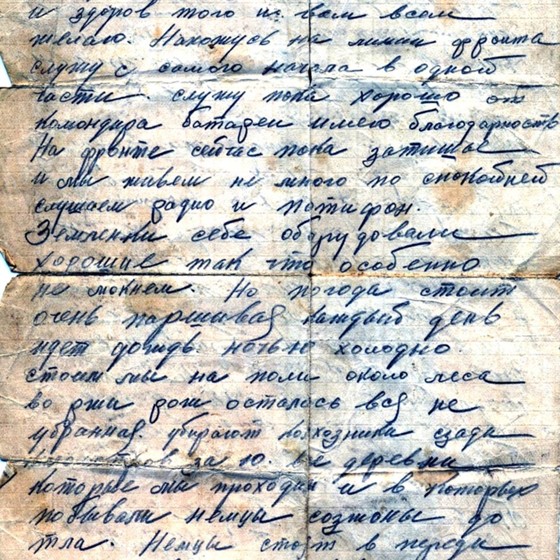 и здоров того и вам всем
желаю. Нахожусь на линии фронта
служу с самого начала в одной
части служу пока хорошо от
командира батареи имею благодарность
На фронте сейчас пока затишье
и мы живем не много по спокойней
слушаем радио и патифон.
Землянки себе оборудовали
хорошие так что особенно
не мокнем. Но погода стоит
очень паршивая каждый день
идет дождь ночью холодно.
стоим мы на поли около леса
во ржи рож осталось вся не
убранная. убирают колхозники сзади
за 10. все деревни
которые мы проходим и в которых
побывали немцы созжоны до
тла. Немцы стоят в переди